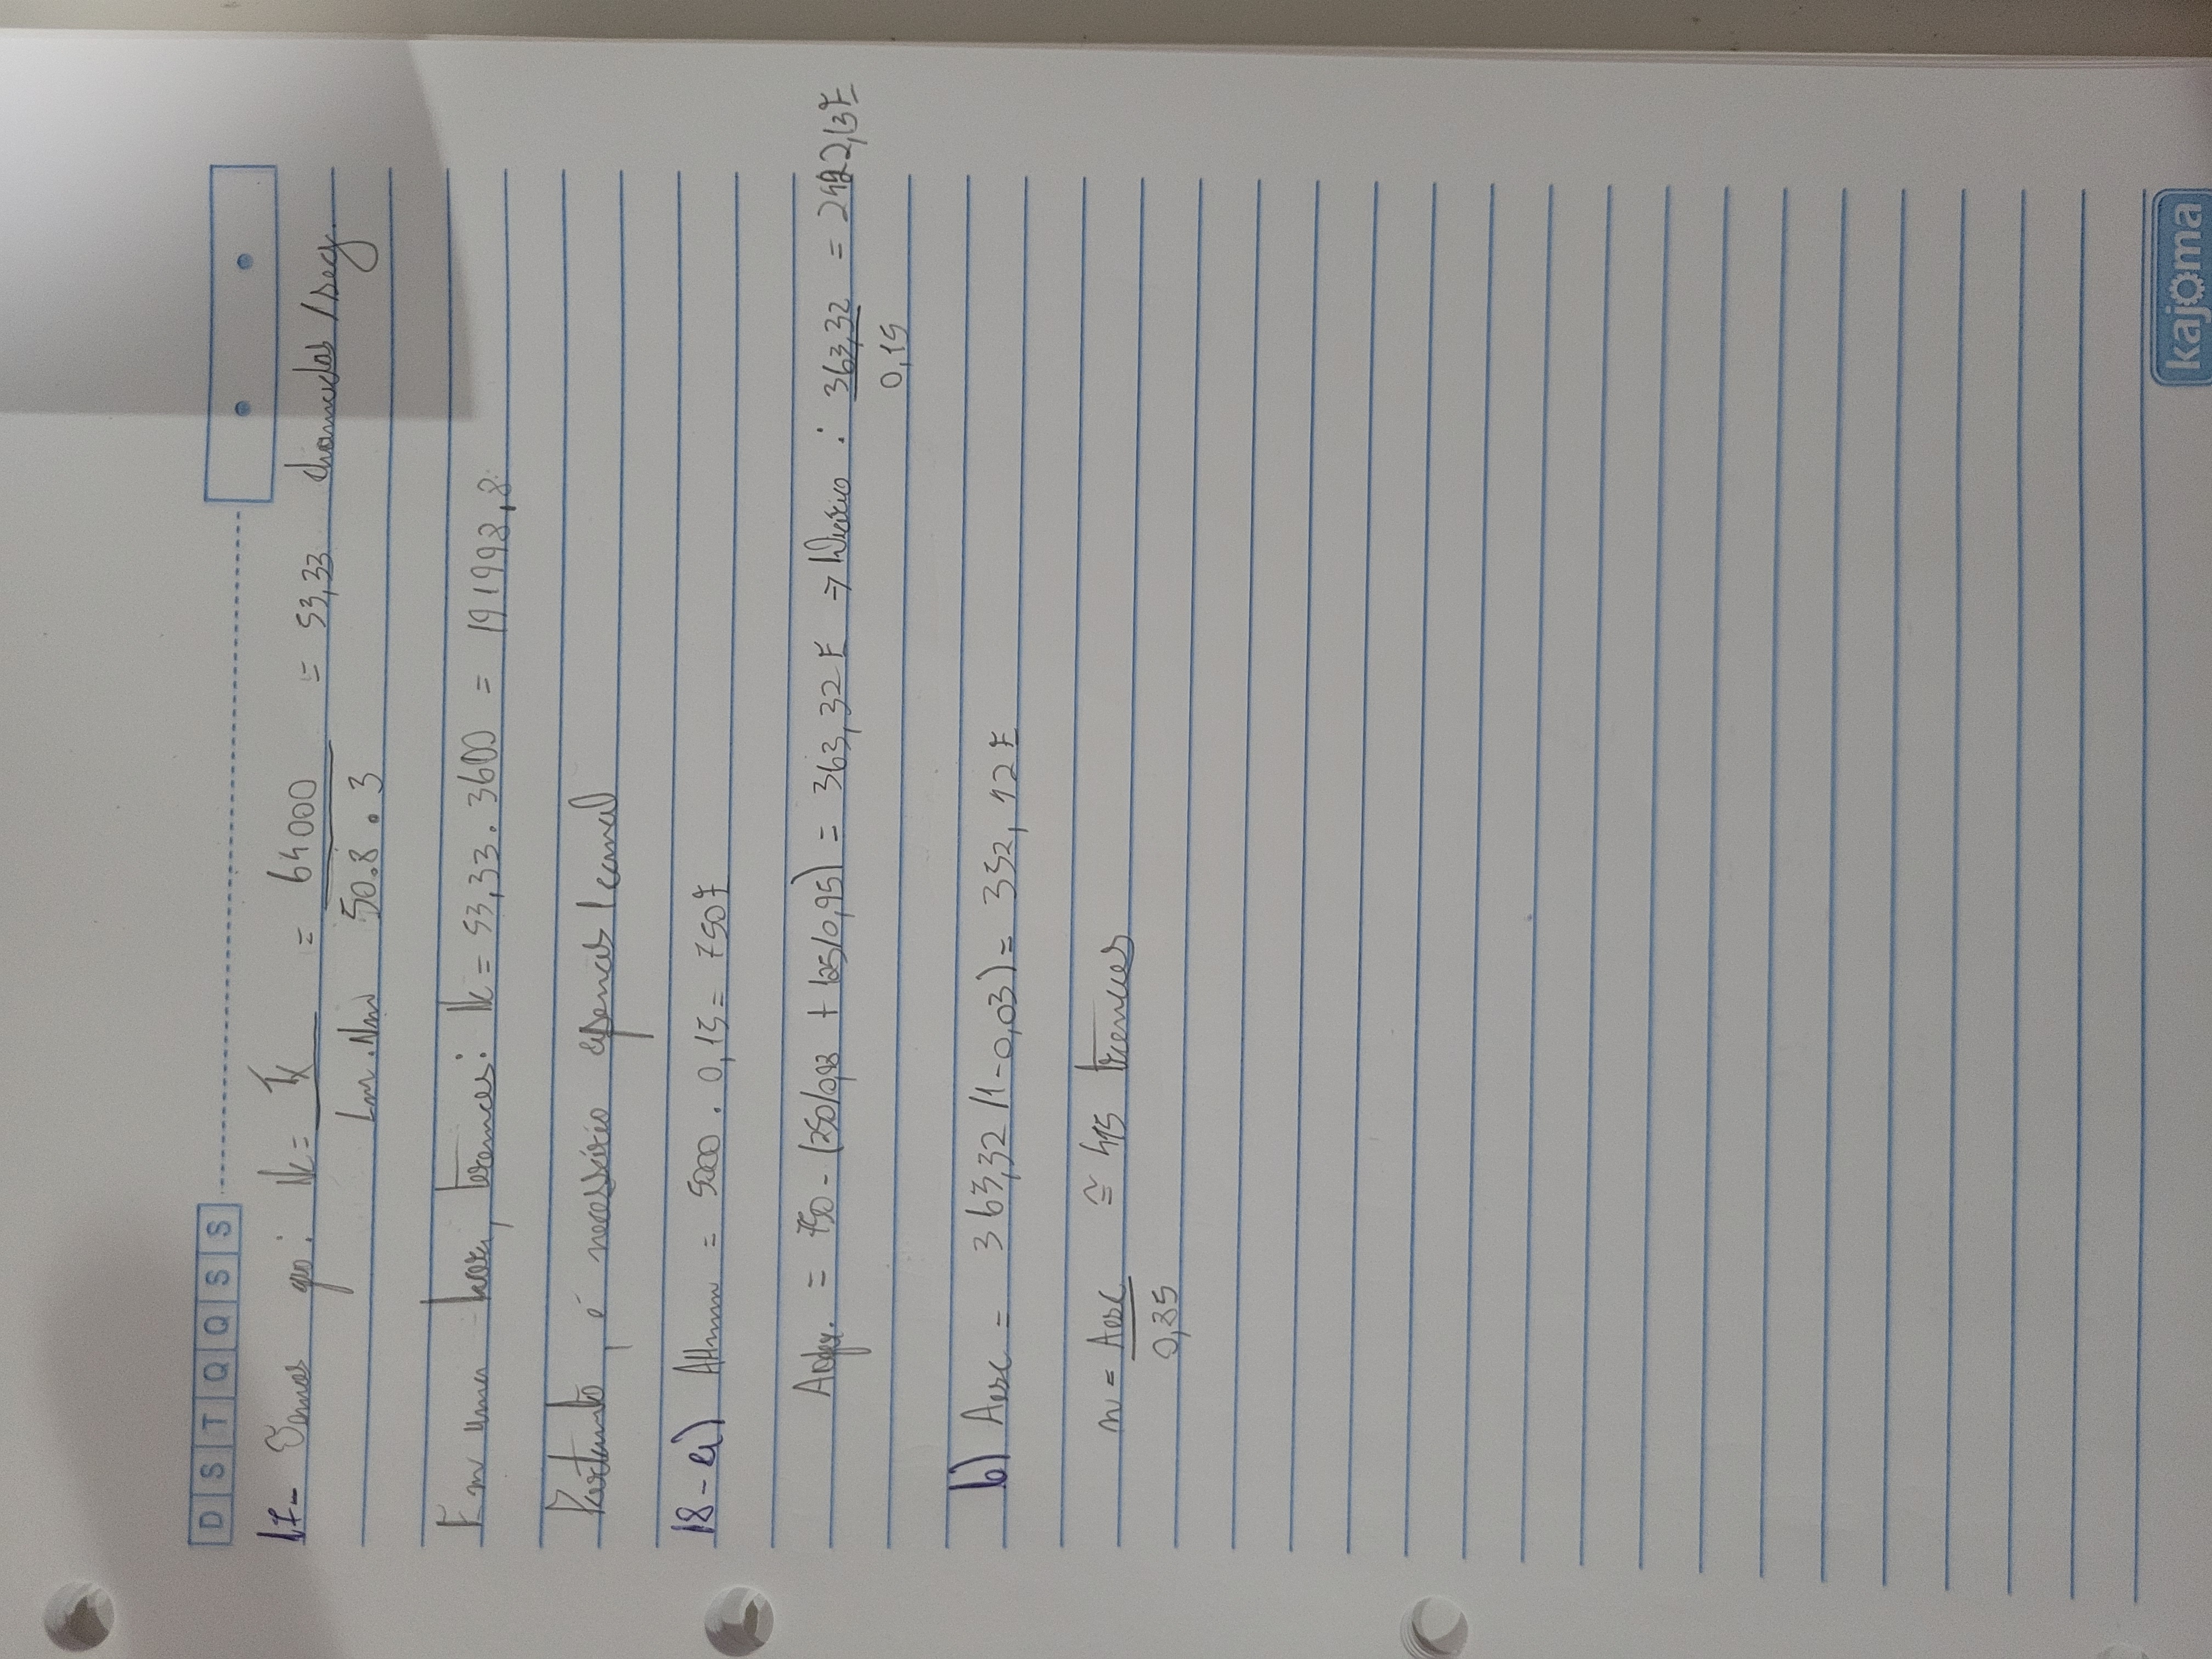 D S T Q Q S S
17- Temos que: Nc = Tx / Lm . Nm = 64000 / 50.8 . 3 = 53,33 chamadas /seg.
Em uma hora, teremos: Nc = 53,33 . 3600 = 191998,8
Portanto, é necessário apenas 1 canal
18-a) = 5000 . 0,15 = 750E
Aofer. = 750 - (250/0,98 + 125/0,95) = 363,32 E → : 363,32 / 0,15 = 2422,13E
b) Aesc = 363,32 (1-0,03) = 352,42 E
n = Aesc / 0,85 ≅ 415 troncos
kajoma